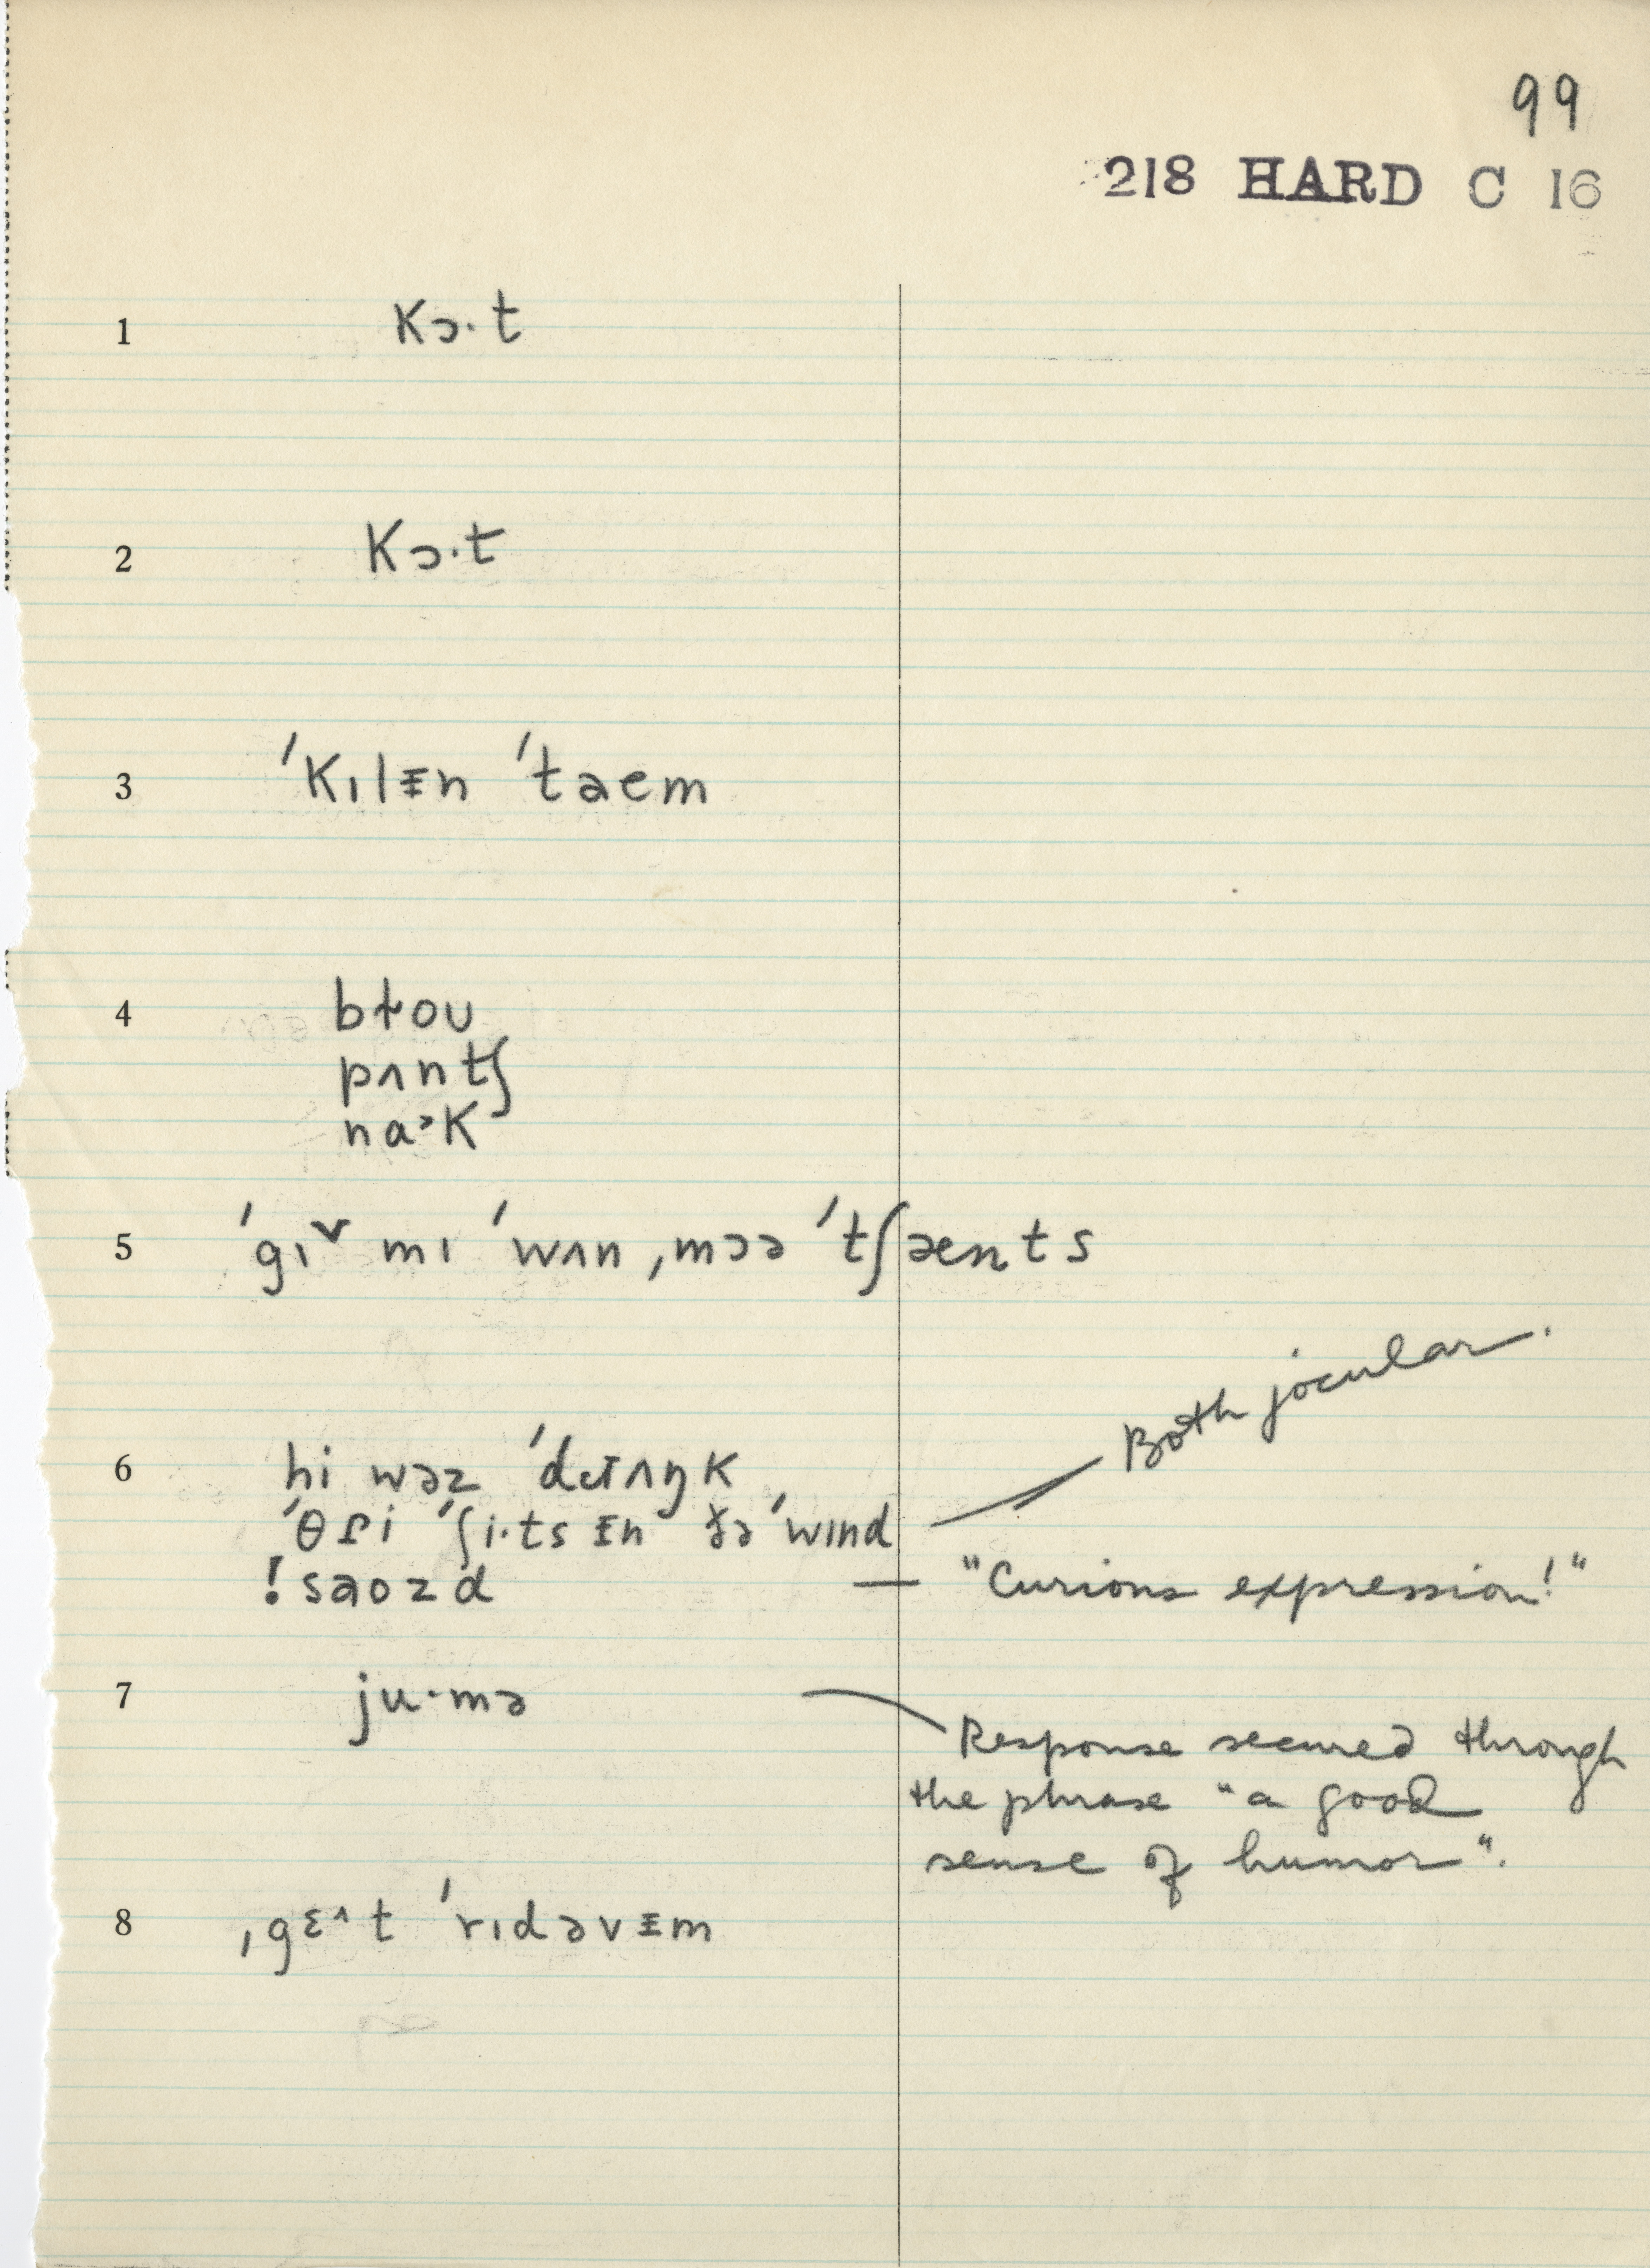 99
218 HARD C 16
1 kɔ·t
2 kɔ·t
3 ˈkɪlᵻn ˈtaem
4 bɫoʊ
pʌntʃ
naˑk
5 ˈgɪ˅ mɪ ˈwʌn ˌmɔə ˈtʃænts
Both jocular.
6 hi wəz ˈdɹɪʌŋk
ˈθɾi ˈʃi·ts ᵻn ðə ˈwɪnd
! saozd — "Curious expression!"
7 ju·mə
Response secured through
the phrase "a good
sense of humor".
8 ˌgɛ^t ˈrɪdəvᵻm